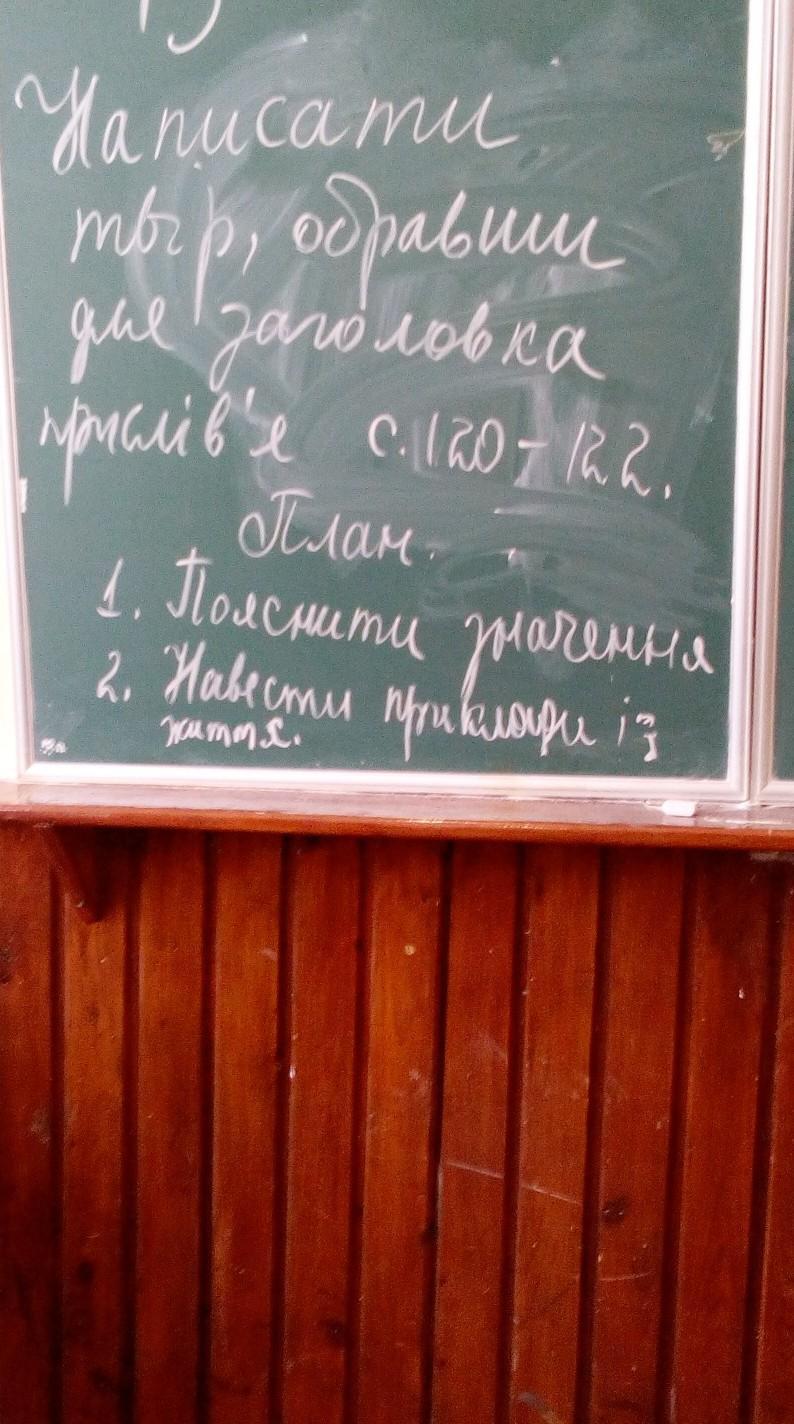 Написати
твір, обравши
для заголовка
прислів'я с. 120-122.
План.
1. Пояснити значення
2. Навести приклади із
життя.